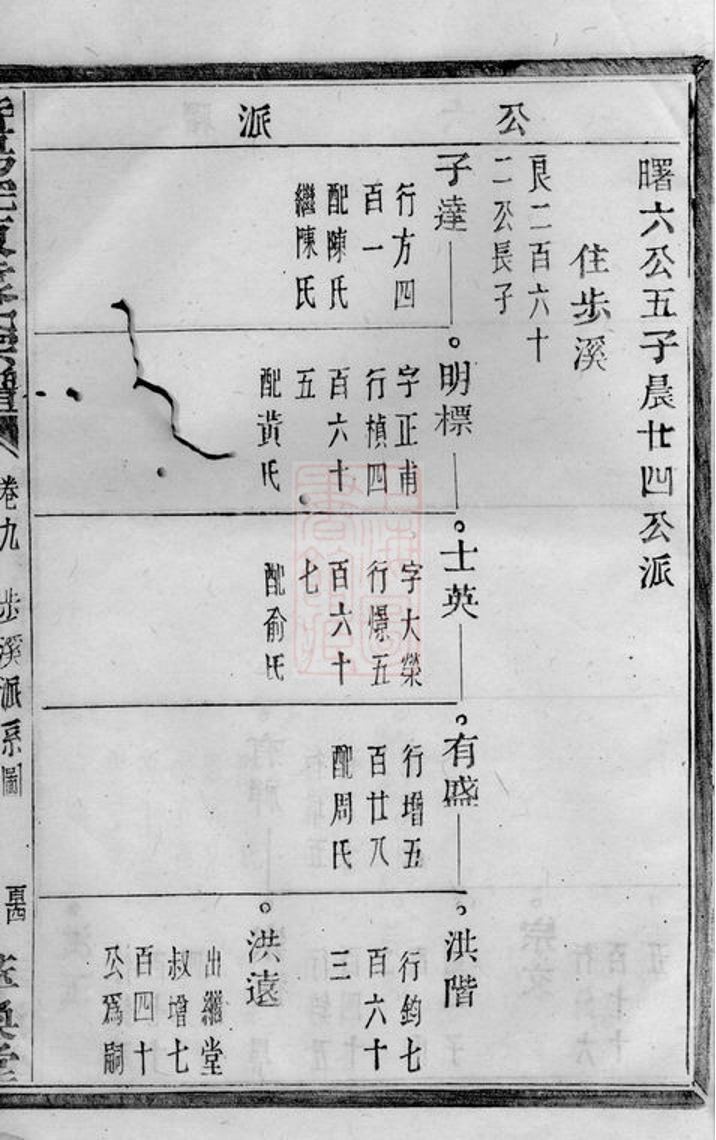 公
派
曙六公五子晨廿四公派
住步溪
良二百六十
二公長子
子達
行方四
百一
配陳氏
繼陳氏
明標
字正甫
行楨四
百六十
五
配黃氏
士英
字大榮
行憬五
百六十
七
配俞氏
有盛
行增五
百廿八
配周氏
洪階
行鈞七
百六十
三
洪遠
出繼堂
叔增七
百四十
公爲嗣
卷九
步溪派系圖